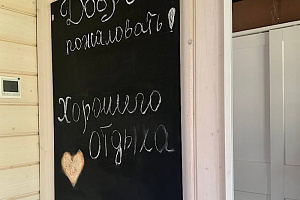 пожаловать!
Хорошего
отдыха